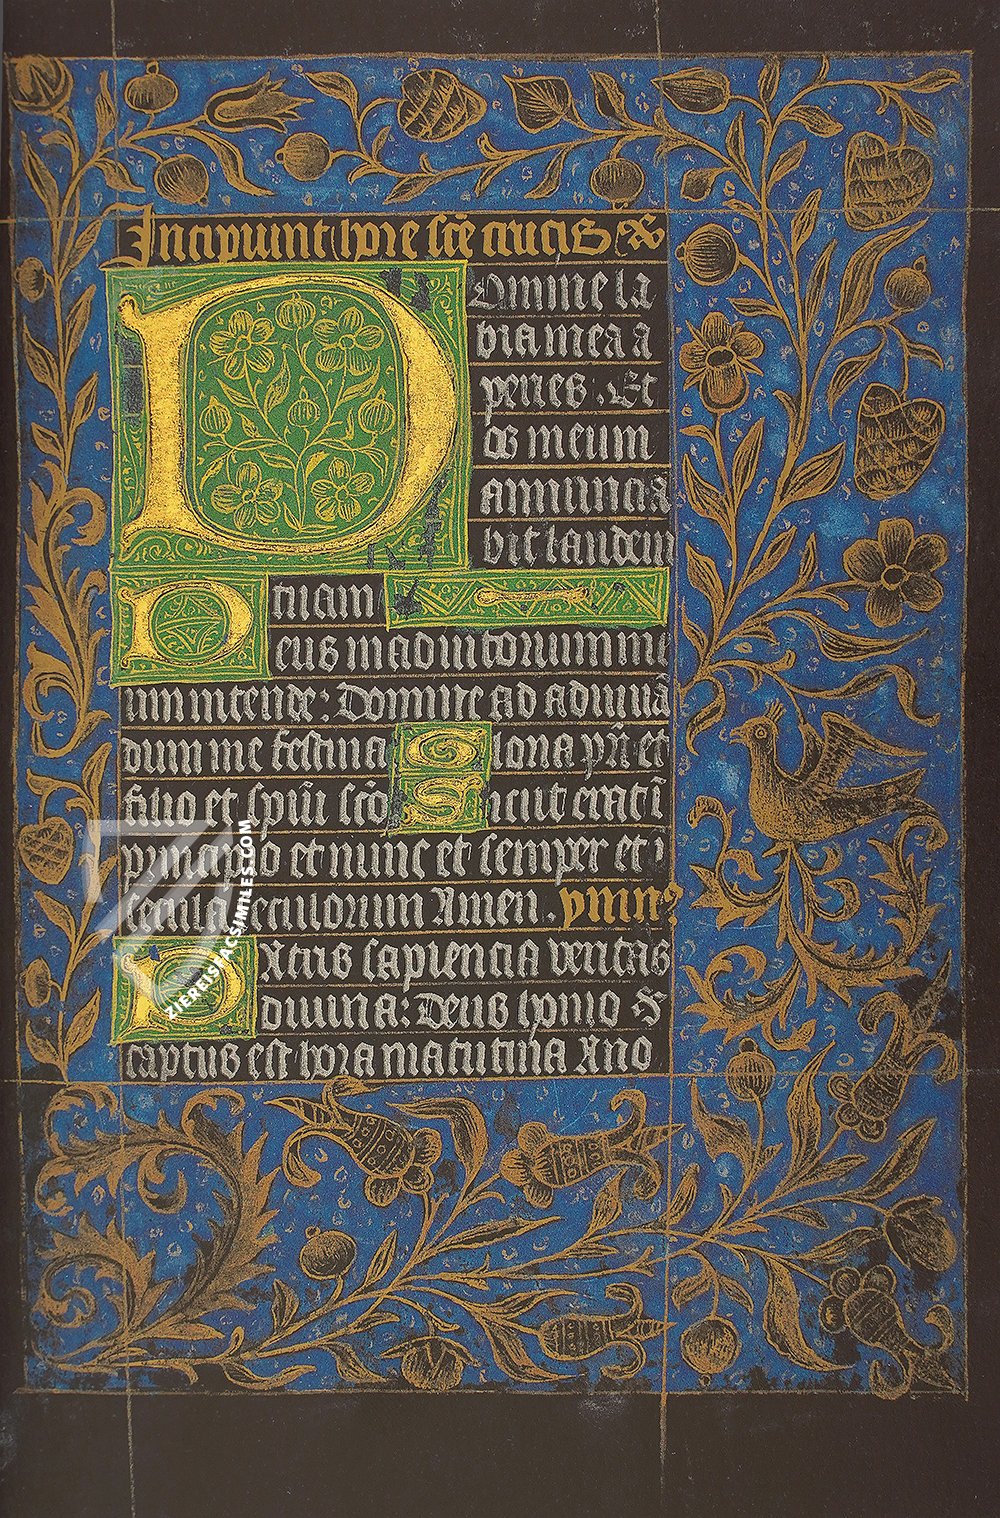 Incipiunt hore scē crucis
Domine la
bia mea a
peries. Et
os meum
annuncia
bit laudem
tuam
Deus in adiutorium me
um intende: Domine ad adiuuā
dum me festina Gloria pr̄i et
filio et spiūi scō Sicut erat ī
principio et nunc et semper et ī
secula seculorum Amen. ymnꝰ
Patris sapiencia veritas
diuina: Deus homo
captus est hora matutina Ano
ZIEREISFACSIMILES.COM